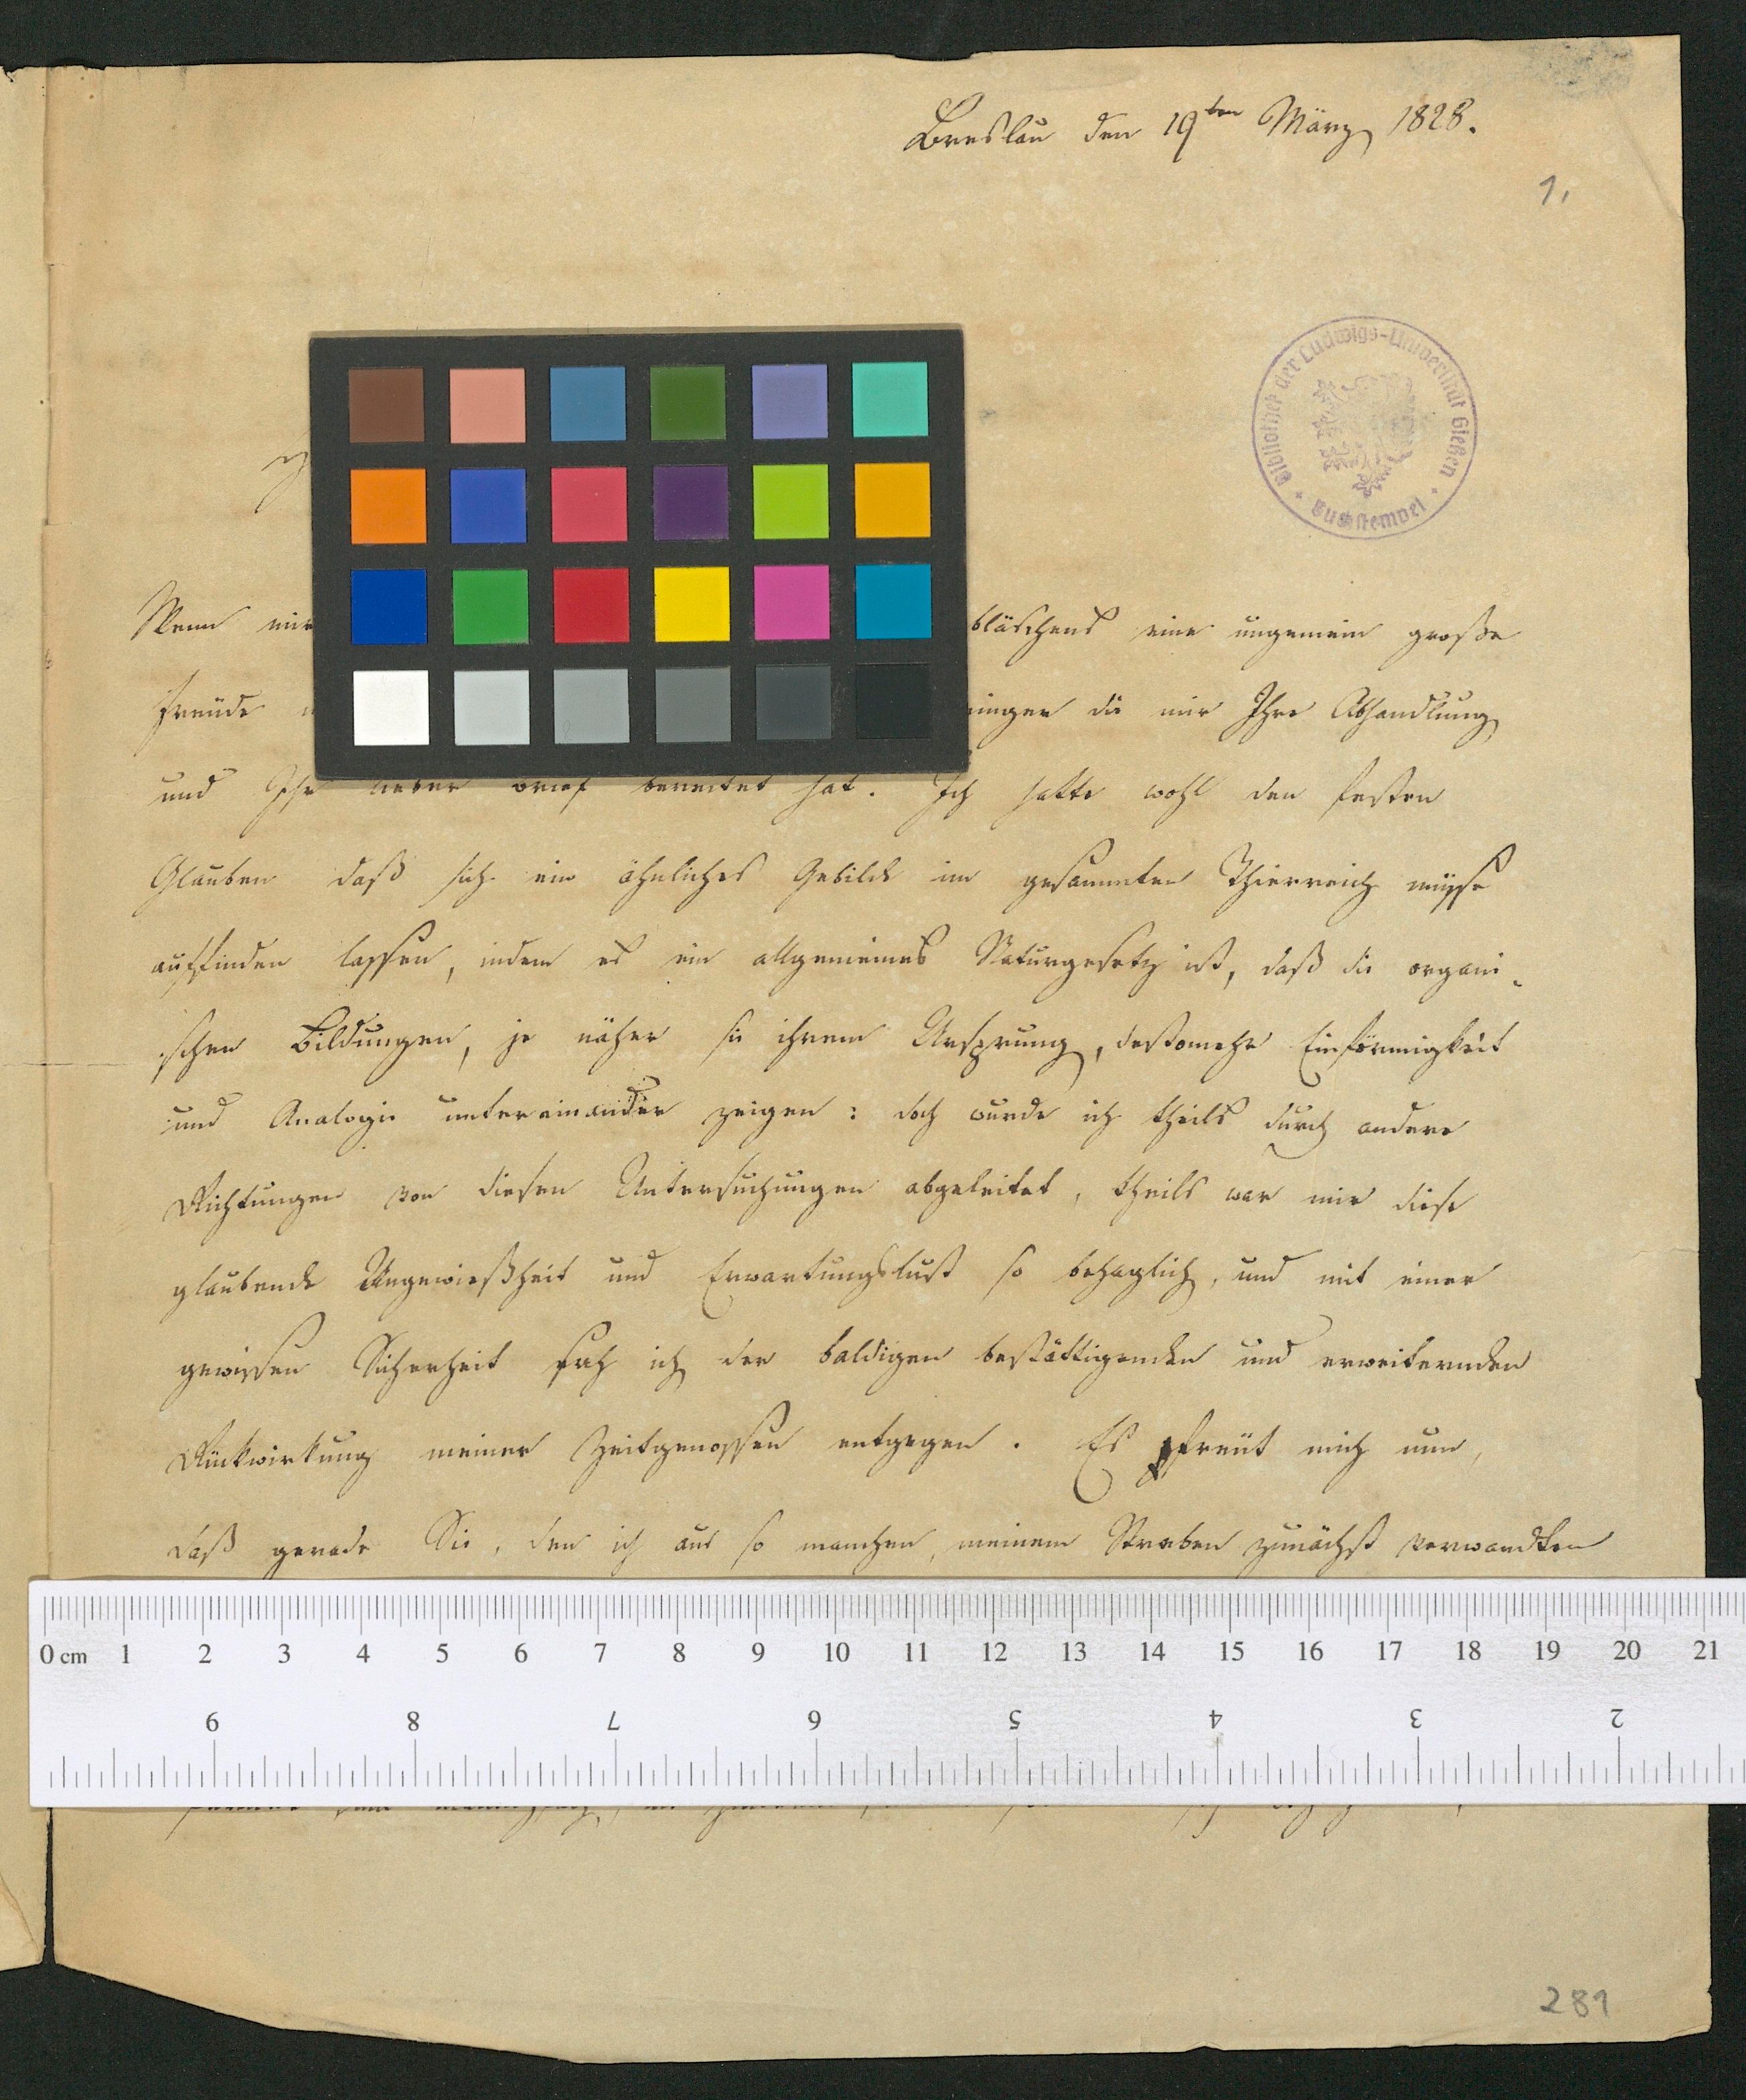 Breslau den 19ten März 1828.
1,
Bibliothek der Ludwigs-Universität Gießen
Buchstempel
Wenn mir bläschens eine ungemein große
Freude die mir Ihre Abhandlung
und Ihr lieber Brief bereitet hat. Ich hatte wohl den festen
Glauben daß sich ein ähnliches Gebilde im gesammten Thierreich müsse
auffinden lassen, indem es ein allgemeines Naturgesetz ist, daß die organi-
schen Bildungen, je näher sie ihrem Ursprung, destomehr Einförmigkeit
und Analogie untereinander zeigen: doch wurde ich theils durch andere
Richtungen von diesen Untersuchungen abgeleitet, theils war mir diese
glaubende Ungewißheit und Erwartungslust so behaglich, und mit einer
gewissen Sicherheit sah ich der baldigen bestättigenden und erweiternden
Rückwirkung meiner Zeitgenossen entgegen. Es freut mich nun,
daß gerade Sie, den ich aus so manchen, meinem Streben zunächst verwandten
0 cm 1 2 3 4 5 6 7 8 9 10 11 12 13 14 15 16 17 18 19 20 21
9 8 7 6 5 4 3 2
281